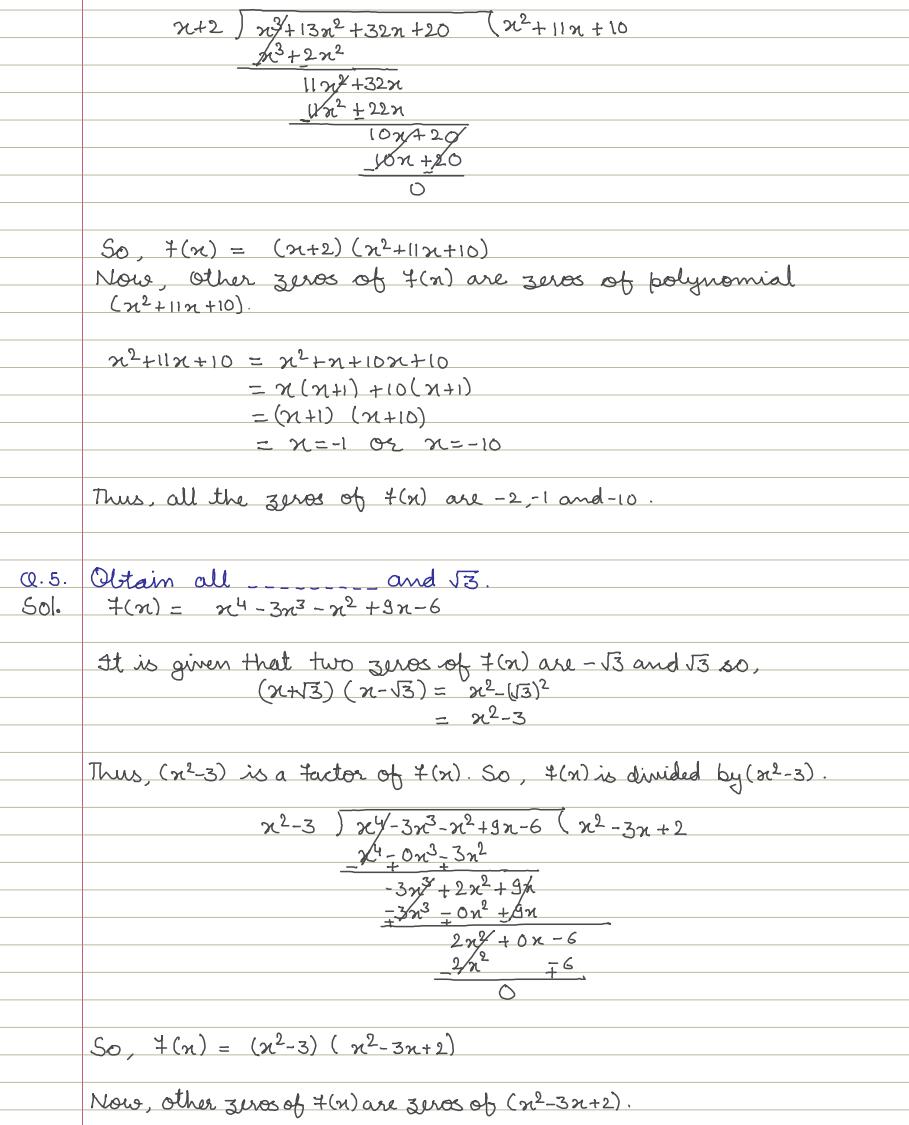 x+2 ) x³+13x²+32x+20 ( x²+11x+10
x³+2x²
11x²+32x
11x²+22x
10x+20
10x+20
0
So, f(x) = (x+2) (x²+11x+10)
Now, other zeros of f(x) are zeros of polynomial
(x²+11x+10).
x²+11x+10 = x²+x+10x+10
= x(x+1) +10(x+1)
= (x+1) (x+10)
= x=-1 or x=-10
Thus, all the zeros of f(x) are -2,-1 and-10.
Q.5. Obtain all _________ and √3.
Sol. f(x) = x⁴-3x³-x²+9x-6
It is given that two zeros of f(x) are -√3 and √3 so,
(x+√3) (x-√3) = x²-(√3)²
= x²-3
Thus, (x²-3) is a factor of f(x). So, f(x) is divided by (x²-3).
x²-3 ) x⁴-3x³-x²+9x-6 ( x²-3x+2
x⁴-0x³-3x²
-3x³+2x²+9x
-3x³-0x²+9x
2x²+0x-6
2x² -6
0
So, f(x) = (x²-3) (x²-3x+2)
Now, other zeros of f(x) are zeros of (x²-3x+2).